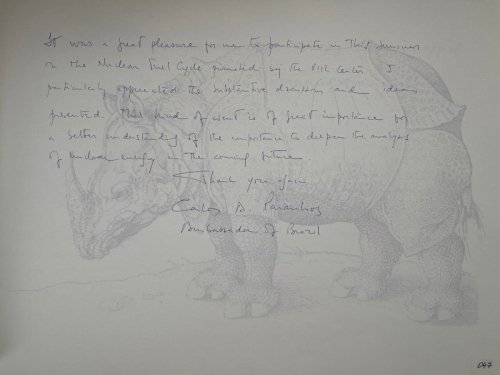 It was a great pleasure for me to participate in this seminar
on the Nuclear Fuel Cycle promoted by the PIR Center. I
particularly appreciated the substantive discussions and ideas
presented. This kind of event is of great importance for
a better understanding of the importance to deepen the analysis
of nuclear energy in the coming future.
Thank you again
Carlos A. Paranhos
Ambassador of Brazil
047